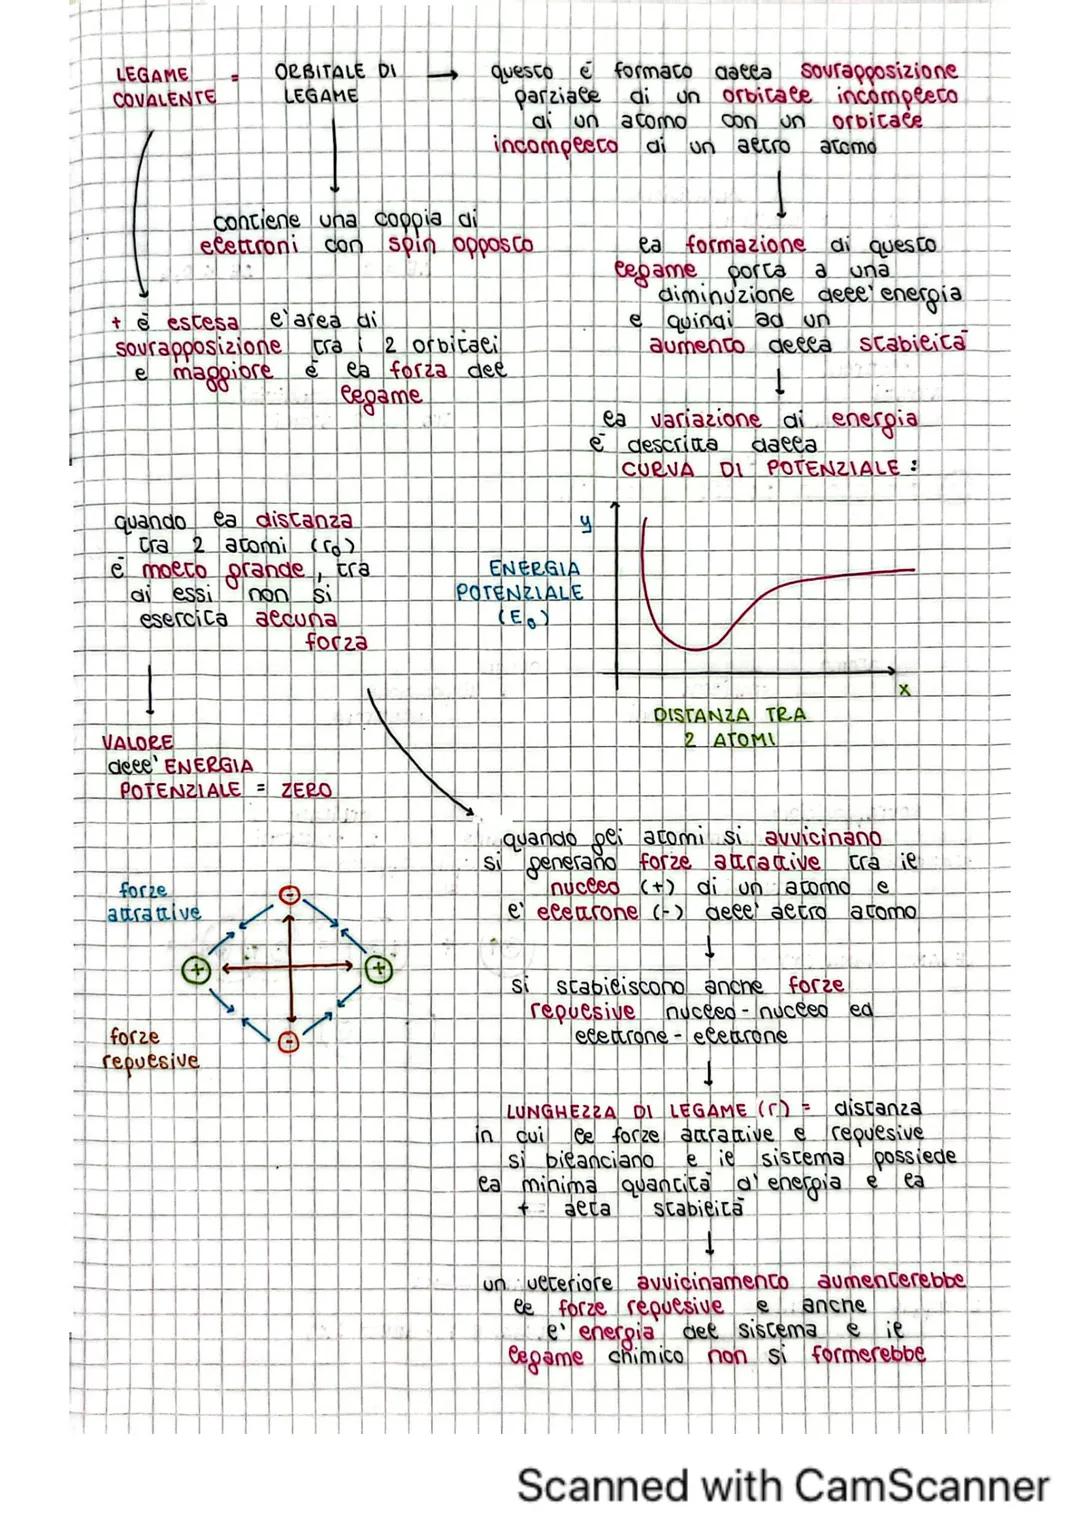 LEGAME = ORBITALE DI → questo é formato dalla sovrapposizione
COVALENTE LEGAME parziale di un orbitale incompleto
di un atomo con un orbitale
incompleto di un altro atomo
contiene una coppia di
elettroni con spin opposto
la formazione di questo
legame porta a una
diminuzione dell'energia
e quindi ad un
aumento della stabilità
+ è estesa l'area di
sovrapposizione tra i 2 orbitali
e maggiore è la forza del
legame
la variazione di energia
è descritta dalla
CURVA DI POTENZIALE :
quando la distanza
tra 2 atomi (r₀)
è molto grande, tra
di essi non si
esercita alcuna
forza
y
ENERGIA
POTENZIALE
(E₀)
x
DISTANZA TRA
2 ATOMI
VALORE
dell' ENERGIA
POTENZIALE = ZERO
quando gli atomi si avvicinano
si generano forze attrattive tra il
nucleo (+) di un atomo e
l' elettrone (-) dell' altro atomo
forze
attrattive
-
+ +
-
forze
repulsive
si stabiliscono anche forze
repulsive nucleo - nucleo ed
elettrone - elettrone
LUNGHEZZA DI LEGAME (r) = distanza
in cui le forze attrattive e repulsive
si bilanciano e il sistema possiede
la minima quantità d' energia e la
+ alta stabilità
un ulteriore avvicinamento aumenterebbe
le forze repulsive e anche
l' energia del sistema e il
legame chimico non si formerebbe
Scanned with CamScanner